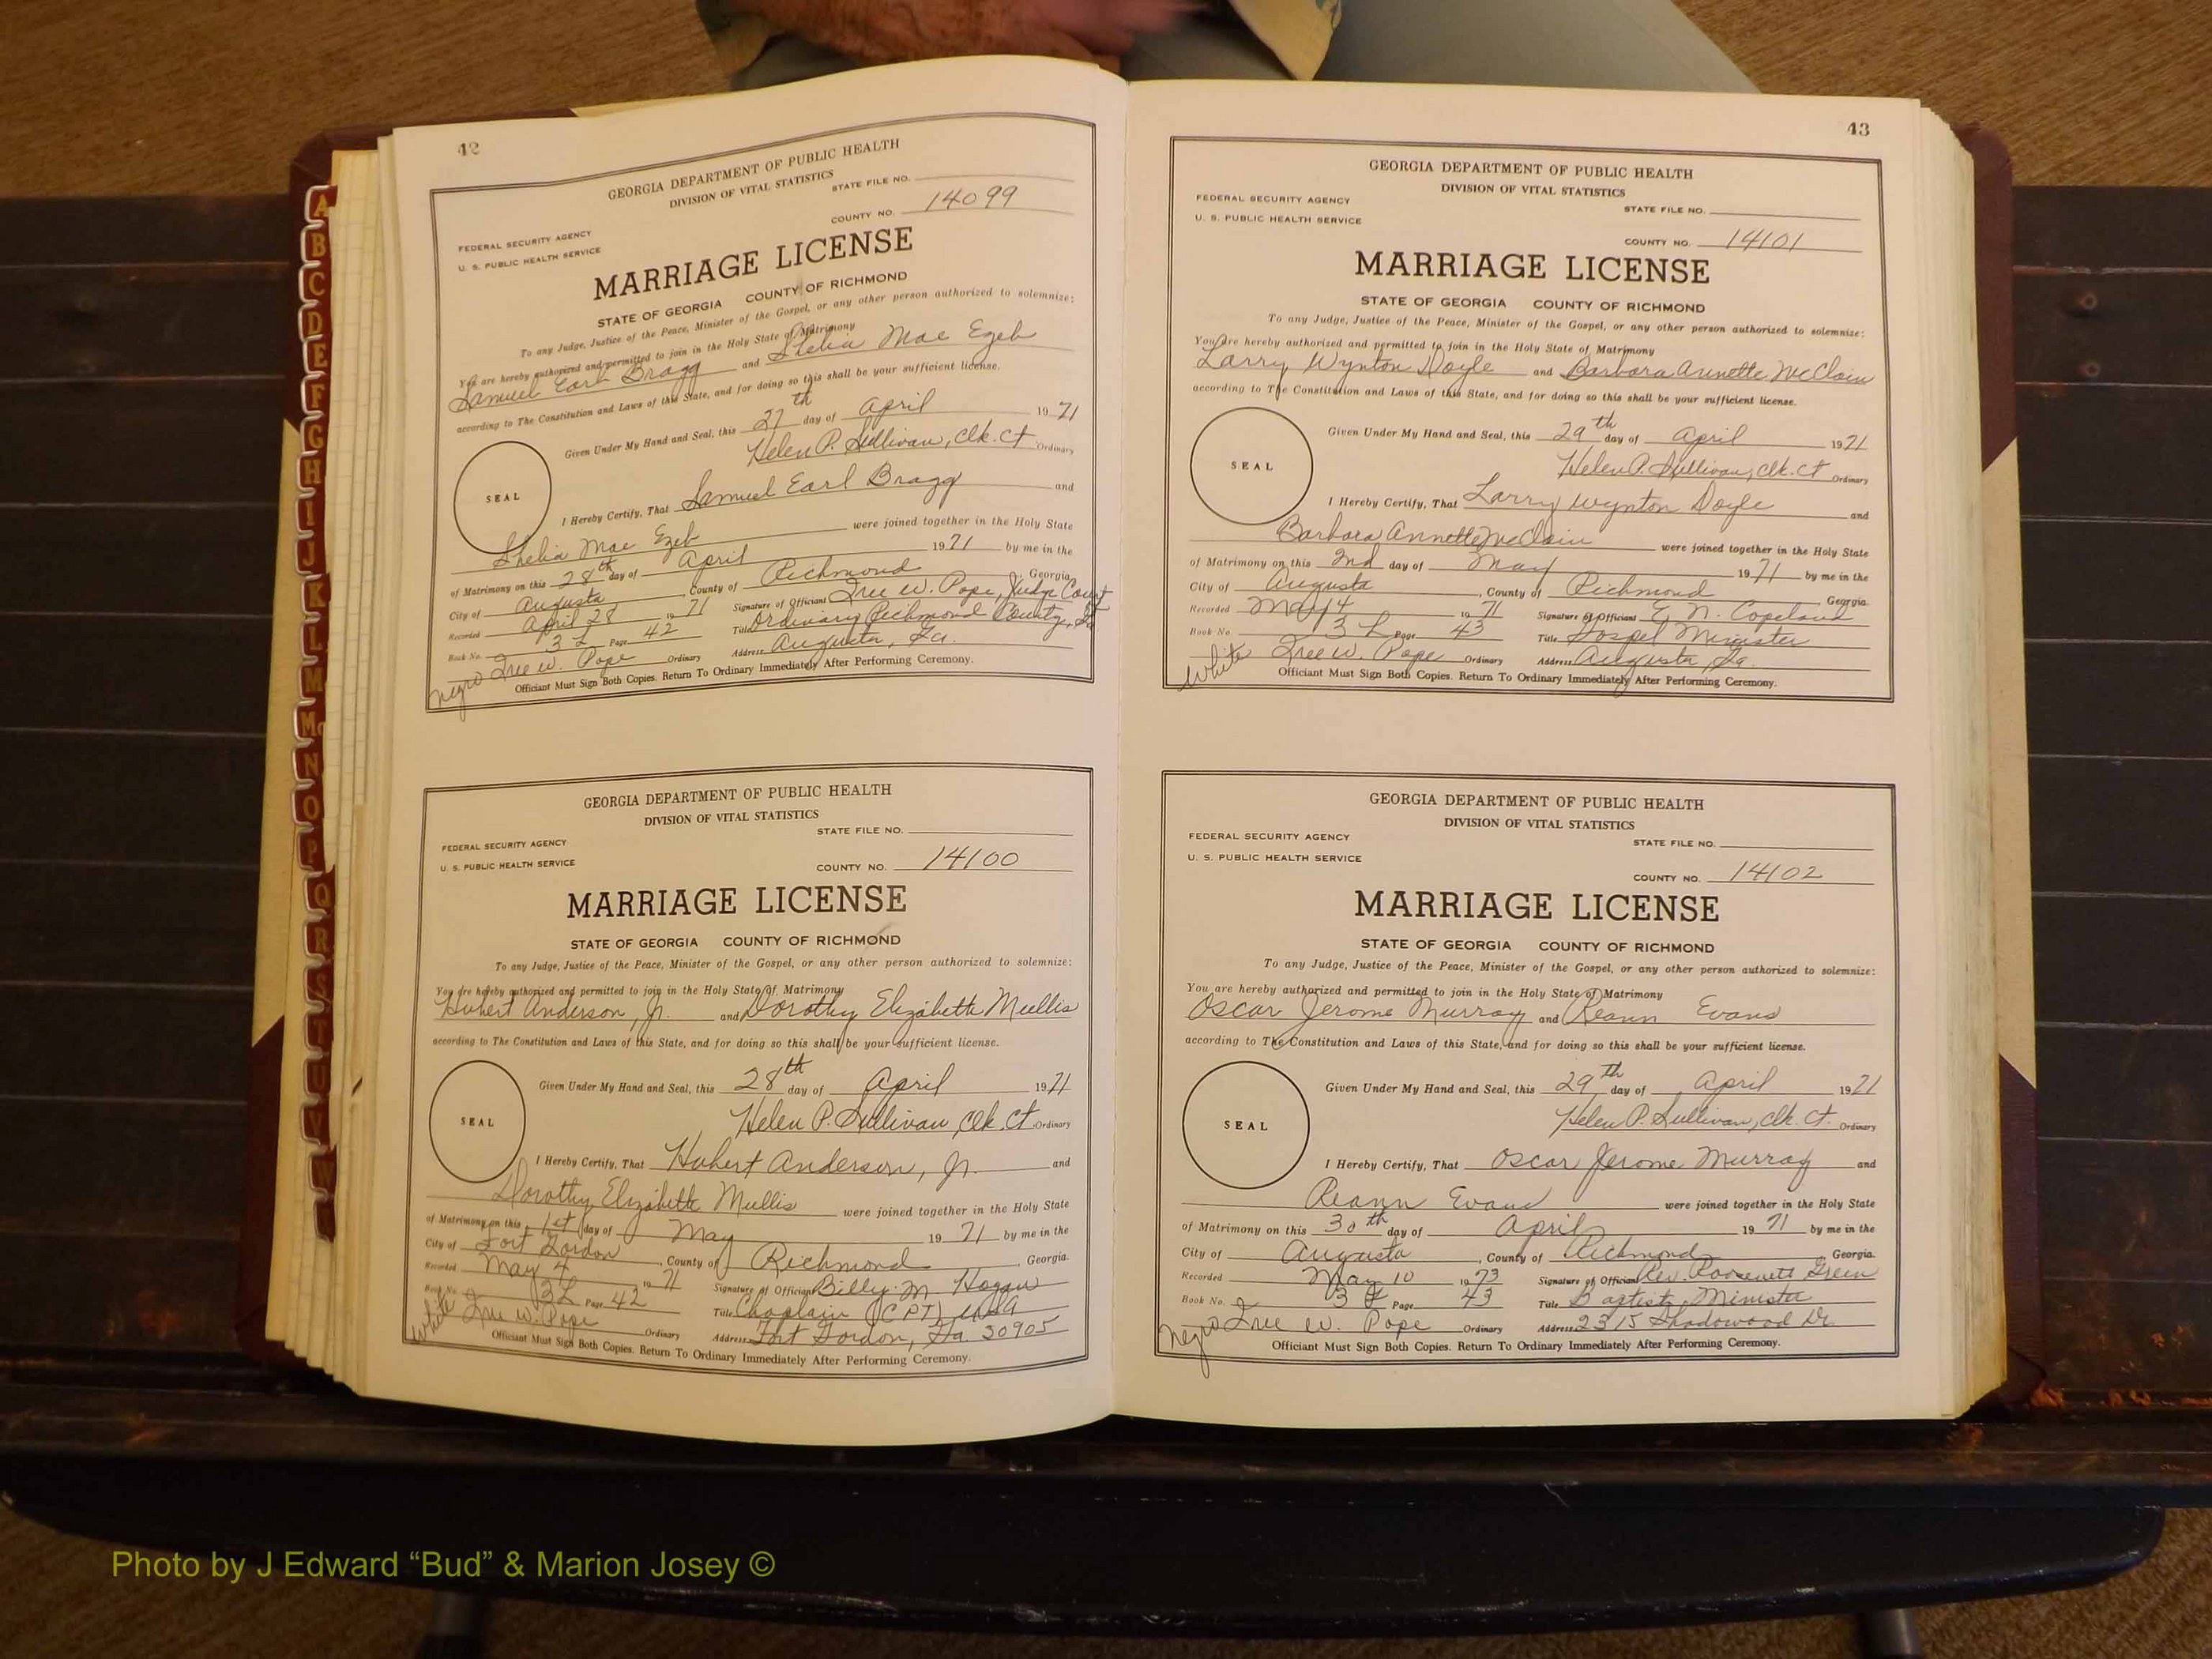 42
GEORGIA DEPARTMENT OF PUBLIC HEALTH
DIVISION OF VITAL STATISTICS
STATE FILE NO.
COUNTY NO. 14099
FEDERAL SECURITY AGENCY
U. S. PUBLIC HEALTH SERVICE
MARRIAGE LICENSE
STATE OF GEORGIA COUNTY OF RICHMOND
To any Judge, Justice of the Peace, Minister of the Gospel, or any other person authorized to solemnize:
You are hereby authorized and permitted to join in the Holy State of Matrimony
Samuel Earl Bragg and Shelia Mae Ezeb
according to The Constitution and Laws of this State, and for doing so this shall be your sufficient license.
Given Under My Hand and Seal, this 27th day of April 1971
Helen P. Sullivan, Clk. Ct Ordinary
SEAL
I Hereby Certify, That Samuel Earl Bragg and
Shelia Mae Ezeb were joined together in the Holy State
of Matrimony on this 28th day of April 1971 by me in the
City of Augusta, County of Richmond, Georgia
Recorded April 28 1971 Signature of Officiant Tree W. Pope, Judge Court
Book No. 3L Page 42 Title Ordinary Richmond County, Ga
Tree W. Pope Ordinary Address Augusta, Ga.
negro Officiant Must Sign Both Copies. Return To Ordinary Immediately After Performing Ceremony.
GEORGIA DEPARTMENT OF PUBLIC HEALTH
DIVISION OF VITAL STATISTICS
STATE FILE NO.
FEDERAL SECURITY AGENCY
U. S. PUBLIC HEALTH SERVICE
COUNTY NO. 14100
MARRIAGE LICENSE
STATE OF GEORGIA COUNTY OF RICHMOND
To any Judge, Justice of the Peace, Minister of the Gospel, or any other person authorized to solemnize:
You are hereby authorized and permitted to join in the Holy State of Matrimony
Hubert Anderson, Jr. and Dorothy Elizabeth Mullis
according to The Constitution and Laws of this State, and for doing so this shall be your sufficient license.
Given Under My Hand and Seal, this 28th day of April 1971
Helen P. Sullivan, Clk. Ct. Ordinary
SEAL
I Hereby Certify, That Hubert Anderson, Jr. and
Dorothy Elizabeth Mullis were joined together in the Holy State
of Matrimony on this 1st day of May 1971 by me in the
City of Fort Gordon, County of Richmond, Georgia.
Recorded May 4 1971 Signature of Officiant Billy M. Hogan
Book No. 3L Page 42 Title Chaplain (CPT) USA
Tree W. Pope Ordinary Address Fort Gordon, Ga. 30905
white Officiant Must Sign Both Copies. Return To Ordinary Immediately After Performing Ceremony.
43
GEORGIA DEPARTMENT OF PUBLIC HEALTH
DIVISION OF VITAL STATISTICS
FEDERAL SECURITY AGENCY
U. S. PUBLIC HEALTH SERVICE
STATE FILE NO.
COUNTY NO. 14101
MARRIAGE LICENSE
STATE OF GEORGIA COUNTY OF RICHMOND
To any Judge, Justice of the Peace, Minister of the Gospel, or any other person authorized to solemnize:
You are hereby authorized and permitted to join in the Holy State of Matrimony
Larry Wynton Doyle and Barbara Annette McClain
according to The Constitution and Laws of this State, and for doing so this shall be your sufficient license.
Given Under My Hand and Seal, this 29th day of April 1971
Helen P. Sullivan, Clk. Ct Ordinary
SEAL
I Hereby Certify, That Larry Wynton Doyle and
Barbara Annette McClain were joined together in the Holy State
of Matrimony on this 2nd day of May 1971 by me in the
City of Augusta, County of Richmond, Georgia
Recorded May 4 1971 Signature of Officiant E. N. Copeland
Book No. 3L Page 43 Title Gospel Minister
white Tree W. Pope Ordinary Address Augusta, Ga.
Officiant Must Sign Both Copies. Return To Ordinary Immediately After Performing Ceremony.
GEORGIA DEPARTMENT OF PUBLIC HEALTH
DIVISION OF VITAL STATISTICS
FEDERAL SECURITY AGENCY
U. S. PUBLIC HEALTH SERVICE
STATE FILE NO.
COUNTY NO. 14102
MARRIAGE LICENSE
STATE OF GEORGIA COUNTY OF RICHMOND
To any Judge, Justice of the Peace, Minister of the Gospel, or any other person authorized to solemnize:
You are hereby authorized and permitted to join in the Holy State of Matrimony
Oscar Jerome Murray and Reann Evans
according to The Constitution and Laws of this State, and for doing so this shall be your sufficient license.
Given Under My Hand and Seal, this 29th day of April 1971
Helen P. Sullivan, Clk. Ct. Ordinary
SEAL
I Hereby Certify, That Oscar Jerome Murray and
Reann Evans were joined together in the Holy State
of Matrimony on this 30th day of April 1971 by me in the
City of Augusta, County of Richmond, Georgia
Recorded May 10 1973 Signature of Officiant Rev. Roosevelt Green
Book No. 3L Page 43 Title Baptist Minister
negro Tree W. Pope Ordinary Address 2315 Shadowood Dr.
Officiant Must Sign Both Copies. Return To Ordinary Immediately After Performing Ceremony.
A
B
C
D
E
F
G
H
I
J
K
L
M
Mc
N
O
P
Q
R
S
T
U
V
W
Photo by J Edward “Bud” & Marion Josey ©